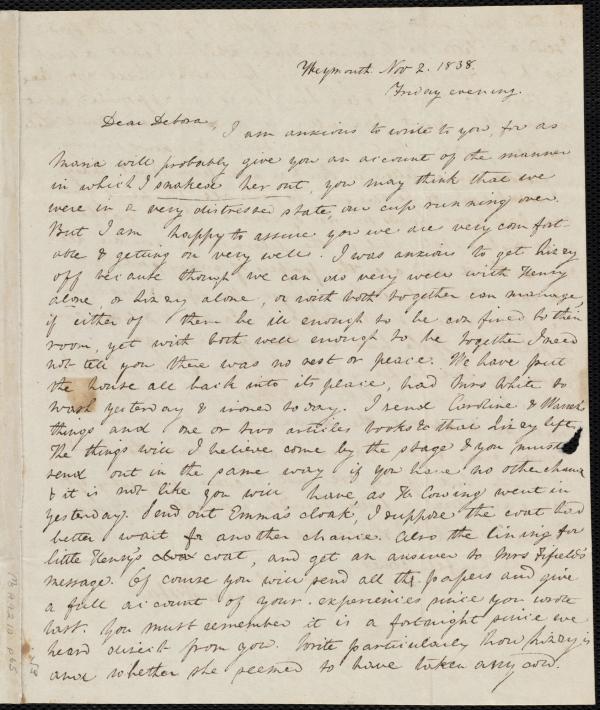 Weymouth Nov 2. 1838.
Friday evening.
Dear Debora,
I am anxious to write to you, for as
Maria will probably give you an account of the manner
in which I snaked her out, you may think that we
were in a very distressed state, our cup running over.
But I am happy to assure you we are very comfort-
able & getting on very well. I was anxious to get Lizzy
off because though we can do very well with Henry
alone, or Lizzy alone, or with both together can manage,
if either of them be ill enough to be confined to their
room, yet with both well enough to be together I need
not tell you there was no rest or peace. We have put
the house all back into its place, had Mrs White to
wash yesterday & ironed today. I send Caroline &
things and one or two articles books &c that Lizzy left.
The things will I believe come by the stage & you must
send out in the same way if you have no other chance
& it is not like you will have, as Mr Cowing went in
yesterday. Send out Emma's cloak, I suppose the coat had
better wait for another chance. Also the lining for
little Henry's coat, and get an answer to Mrs Fifield's
message. Of course you will send all the papers and give
a full account of your experiences since you wrote
last. You must remember it is a fortnight since we
heard direct from you. Write particularly how Lizzy is
and whether she seemed to have taken any cold.